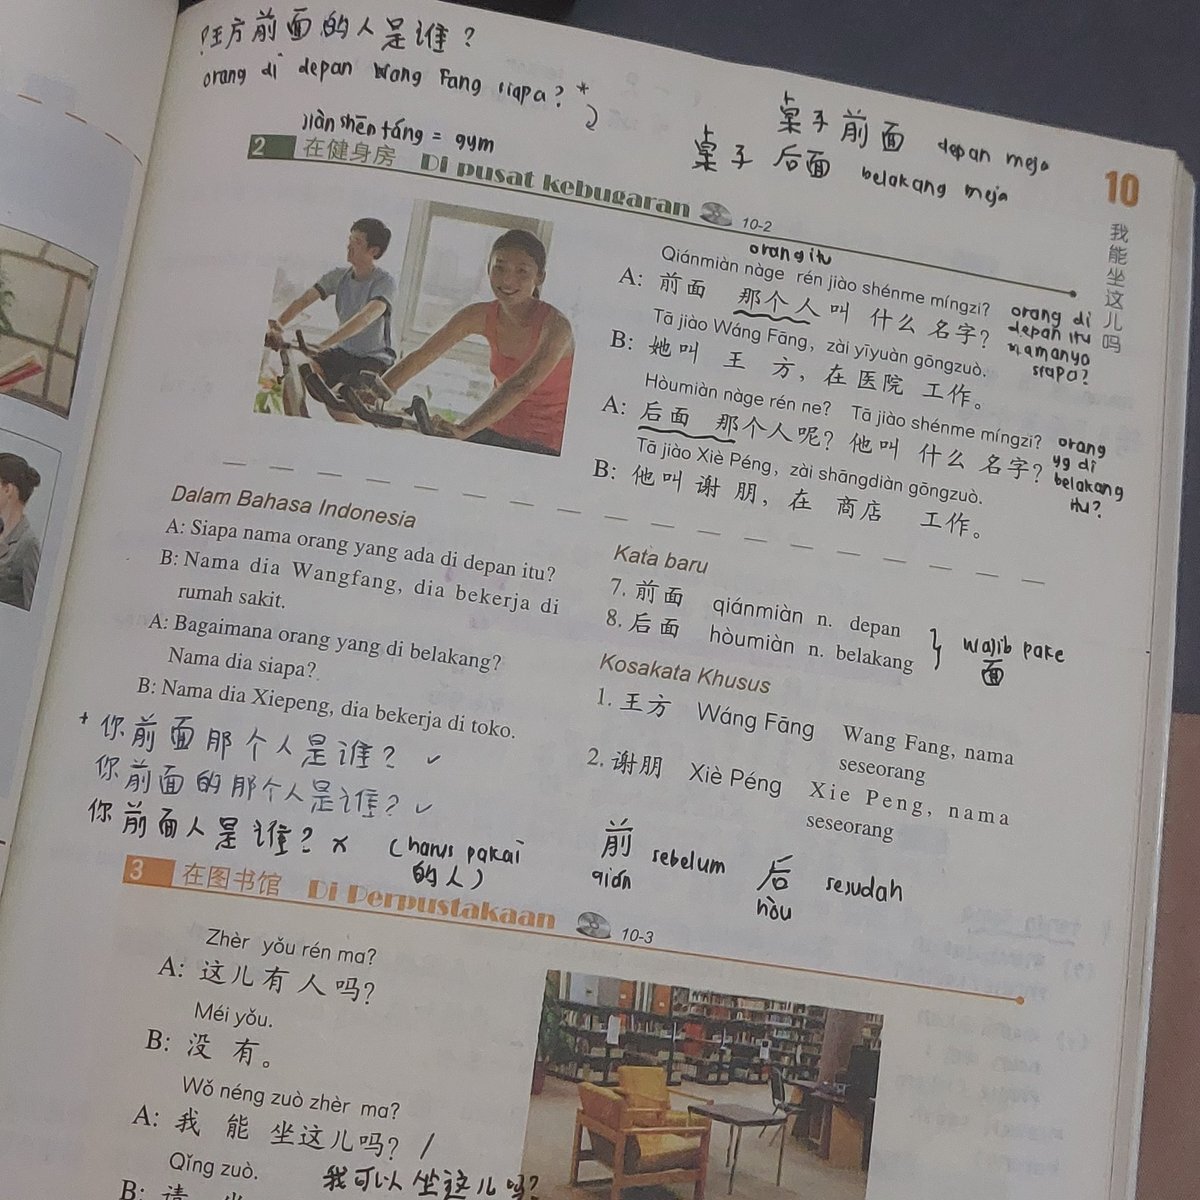 王方前面的人是谁?
orang di depan Wang Fang siapa? *
桌子前面 depan meja
桌子后面 belakang meja
jiàn shēn táng = gym
2 在健身房 Di pusat kebugaran 10-2
10
我能坐这儿吗
orang itu
Qiánmiàn nàge rén jiào shénme míngzi?
A: 前面 那个人叫 什么 名字?
orang di
depan itu
namanya
siapa?
Tā jiào Wáng Fāng, zài yīyuàn gōngzuò.
B: 她叫 王 方, 在医院 工作。
Hòumiàn nàge rén ne? Tā jiào shénme míngzi?
A: 后面 那个人呢? 他叫 什么 名字?
orang
yg di
belakang
itu?
Tā jiào Xiè Péng, zài shāngdiàn gōngzuò.
B: 他叫 谢 朋, 在 商店 工作。
Dalam Bahasa Indonesia
A: Siapa nama orang yang ada di depan itu?
B: Nama dia Wangfang, dia bekerja di
rumah sakit.
A: Bagaimana orang yang di belakang?
Nama dia siapa?
B: Nama dia Xiepeng, dia bekerja di toko.
Kata baru
7. 前面 qiánmiàn n. depan
8. 后面 hòumiàn n. belakang
} wajib pake
面
Kosakata Khusus
1. 王方 Wáng Fāng Wang Fang, nama
seseorang
2. 谢朋 Xiè Péng Xie Peng, nama
seseorang
+ 你前面那个人是谁? ✓
你前面的那个人是谁? ✓
你前面人是谁? x (harus pakai
的人)
前 sebelum 后 sesudah
qián hòu
3 在图书馆 Di Perpustakaan 10-3
Zhèr yǒu rén ma?
A: 这儿有人吗?
Méi yǒu.
B: 没 有。
Wǒ néng zuò zhèr ma?
A: 我 能 坐这儿吗? /
Qǐng zuò.
我可以坐这儿吗?
B: 请 坐